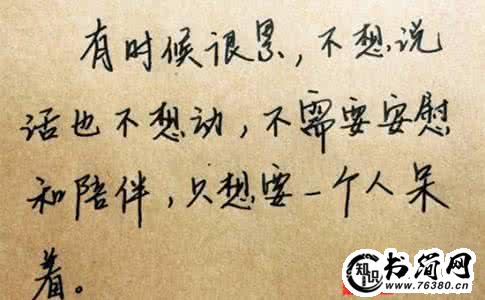 有时候很累，不想说
话也不想动，不需要安慰
和陪伴，只想要一个人呆
着。
知识
书简网
www.76380.cn